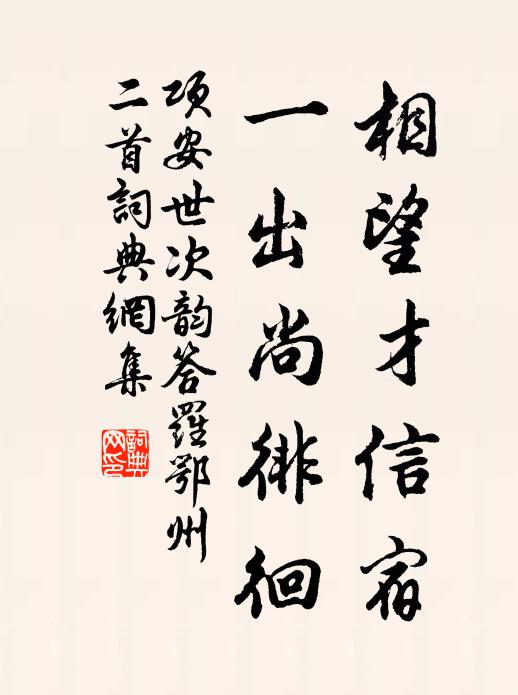 相望才信宿
一出尚徘徊
项安世次韵答羅鄂州
二首詞典網集
詞典
网印